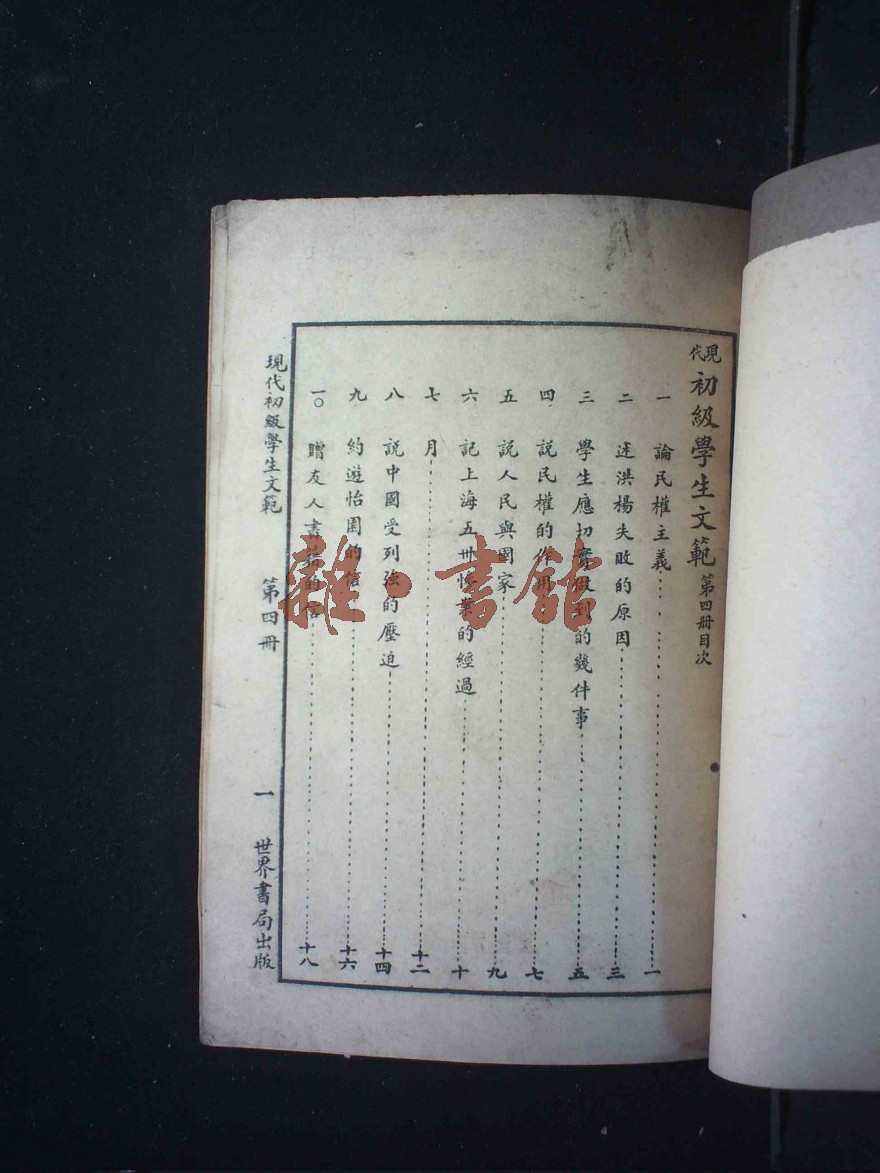 現代初級學生文範 第四册目次
一 論民權主義 一
二 述洪楊失敗的原因 三
三 學生應切實做到的幾件事 五
四 說民權的作用 七
五 說人民與國家 九
六 記上海五卅慘案的經過 十
七 月 十二
八 說中國受列強的壓迫 十四
九 約遊怡園的信 十六
一〇 贈友人書籍的信 十八
現代初級學生文範 第四册 一 世界書局出版
雜·書館